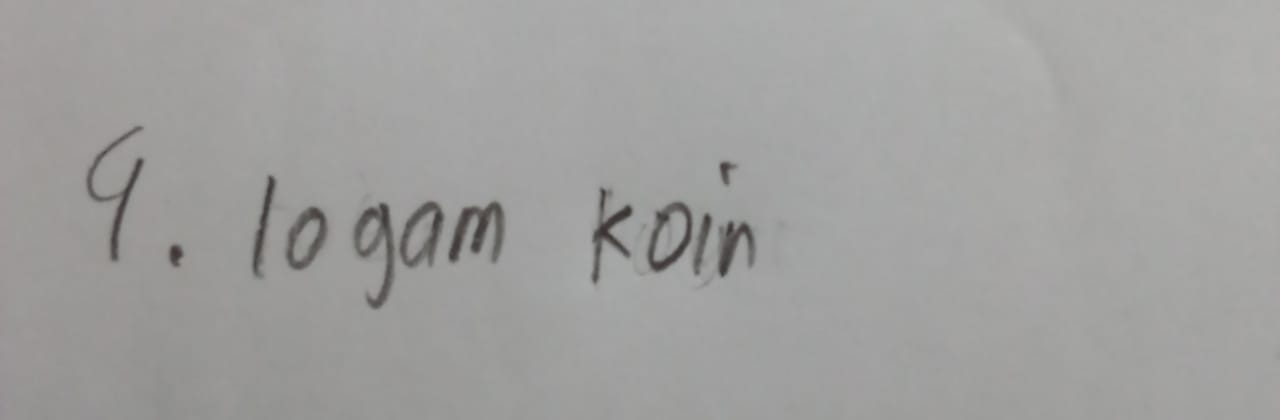 4. logam koin